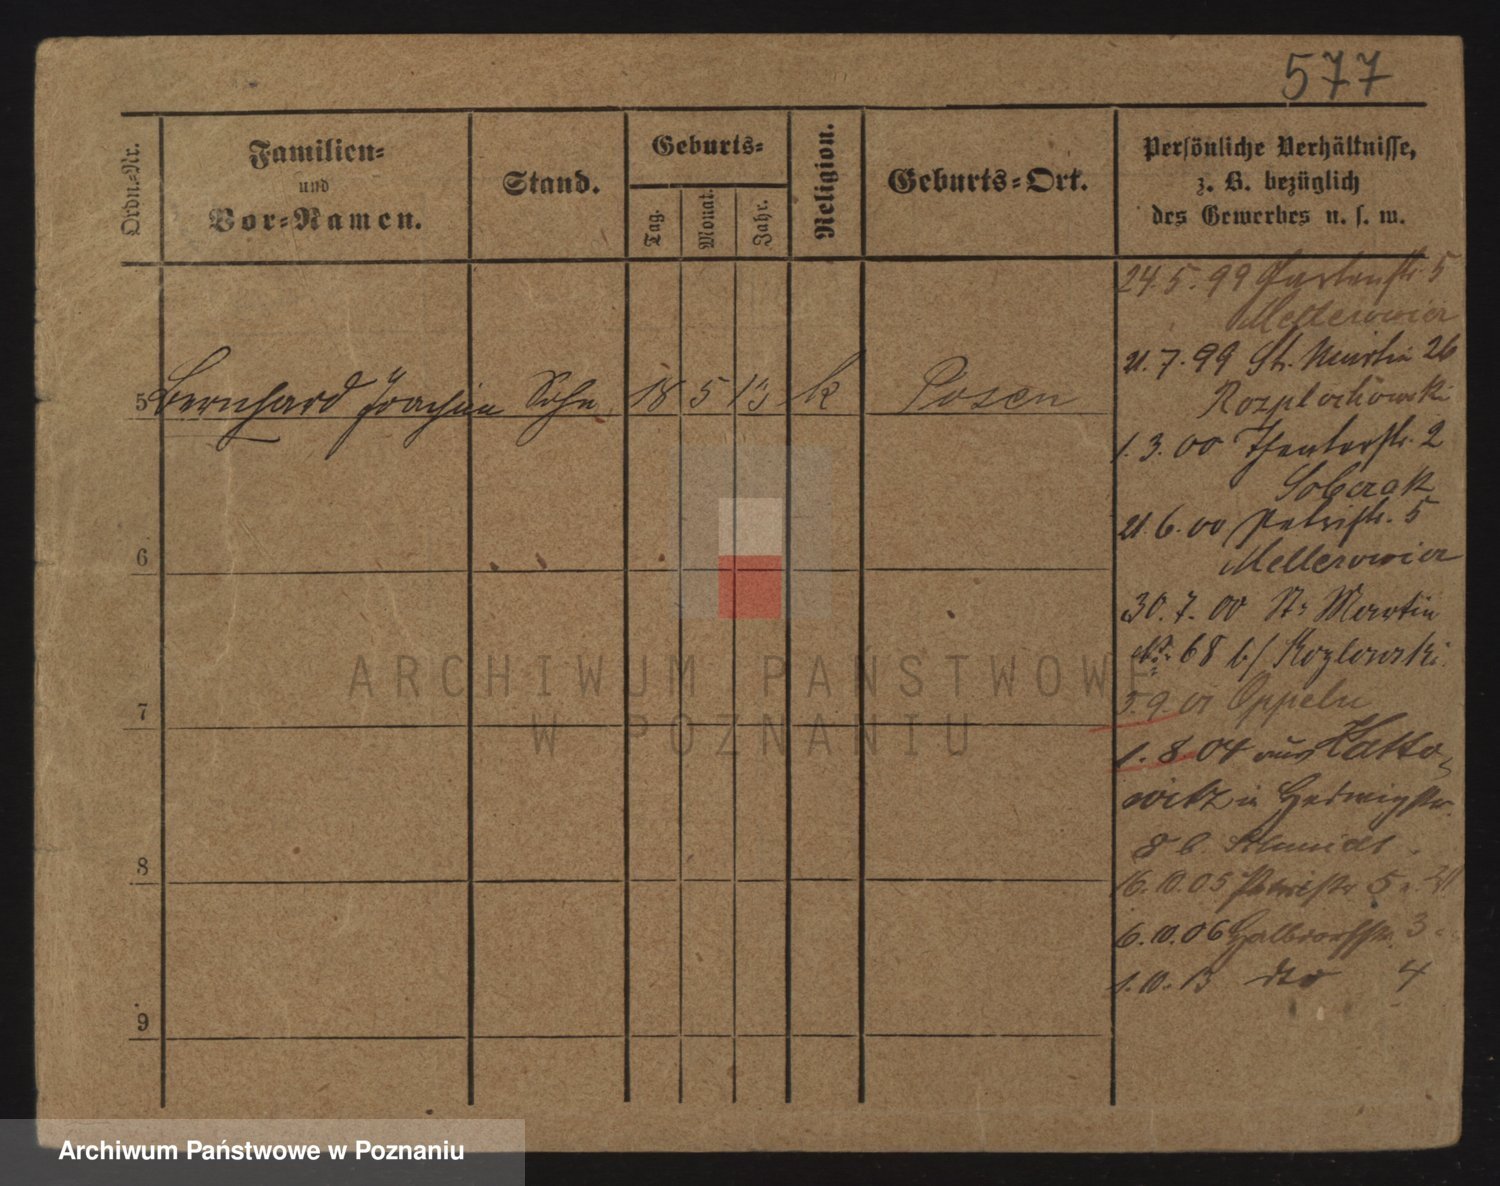 577
Ordn.-Nr.
Familien-
und
Vor-Namen.
Stand.
Geburts-
Tag.
Monat.
Jahr.
Religion.
Geburts-Ort.
Persönliche Verhältnisse,
z. B. bezüglich
des Gewerbes u. s. w.
24.5.99 Gartenstr. 5
Mellerowicz
21.7.99 St. Martin 26
Rozplochowski
5 Bernhard Joachim Sohn 18 5 13 k Posen
1.3.00 Theaterstr. 2
Sobczak
21.6.00 Petristr. 5
Mellerowicz
6
30.7.00 St. Martin
No. 68 b/ Kozlowski
7
5.9.01 Oppeln
1.8.04 aus Katto-
witz in Hedwigstr.
8 b. Schmidt
8
16.10.05 Petristr 5
6.10.06 3
1.10.13 dto 4
9
ARCHIWUM PAŃSTWOWE
W POZNANIU
Archiwum Państwowe w Poznaniu